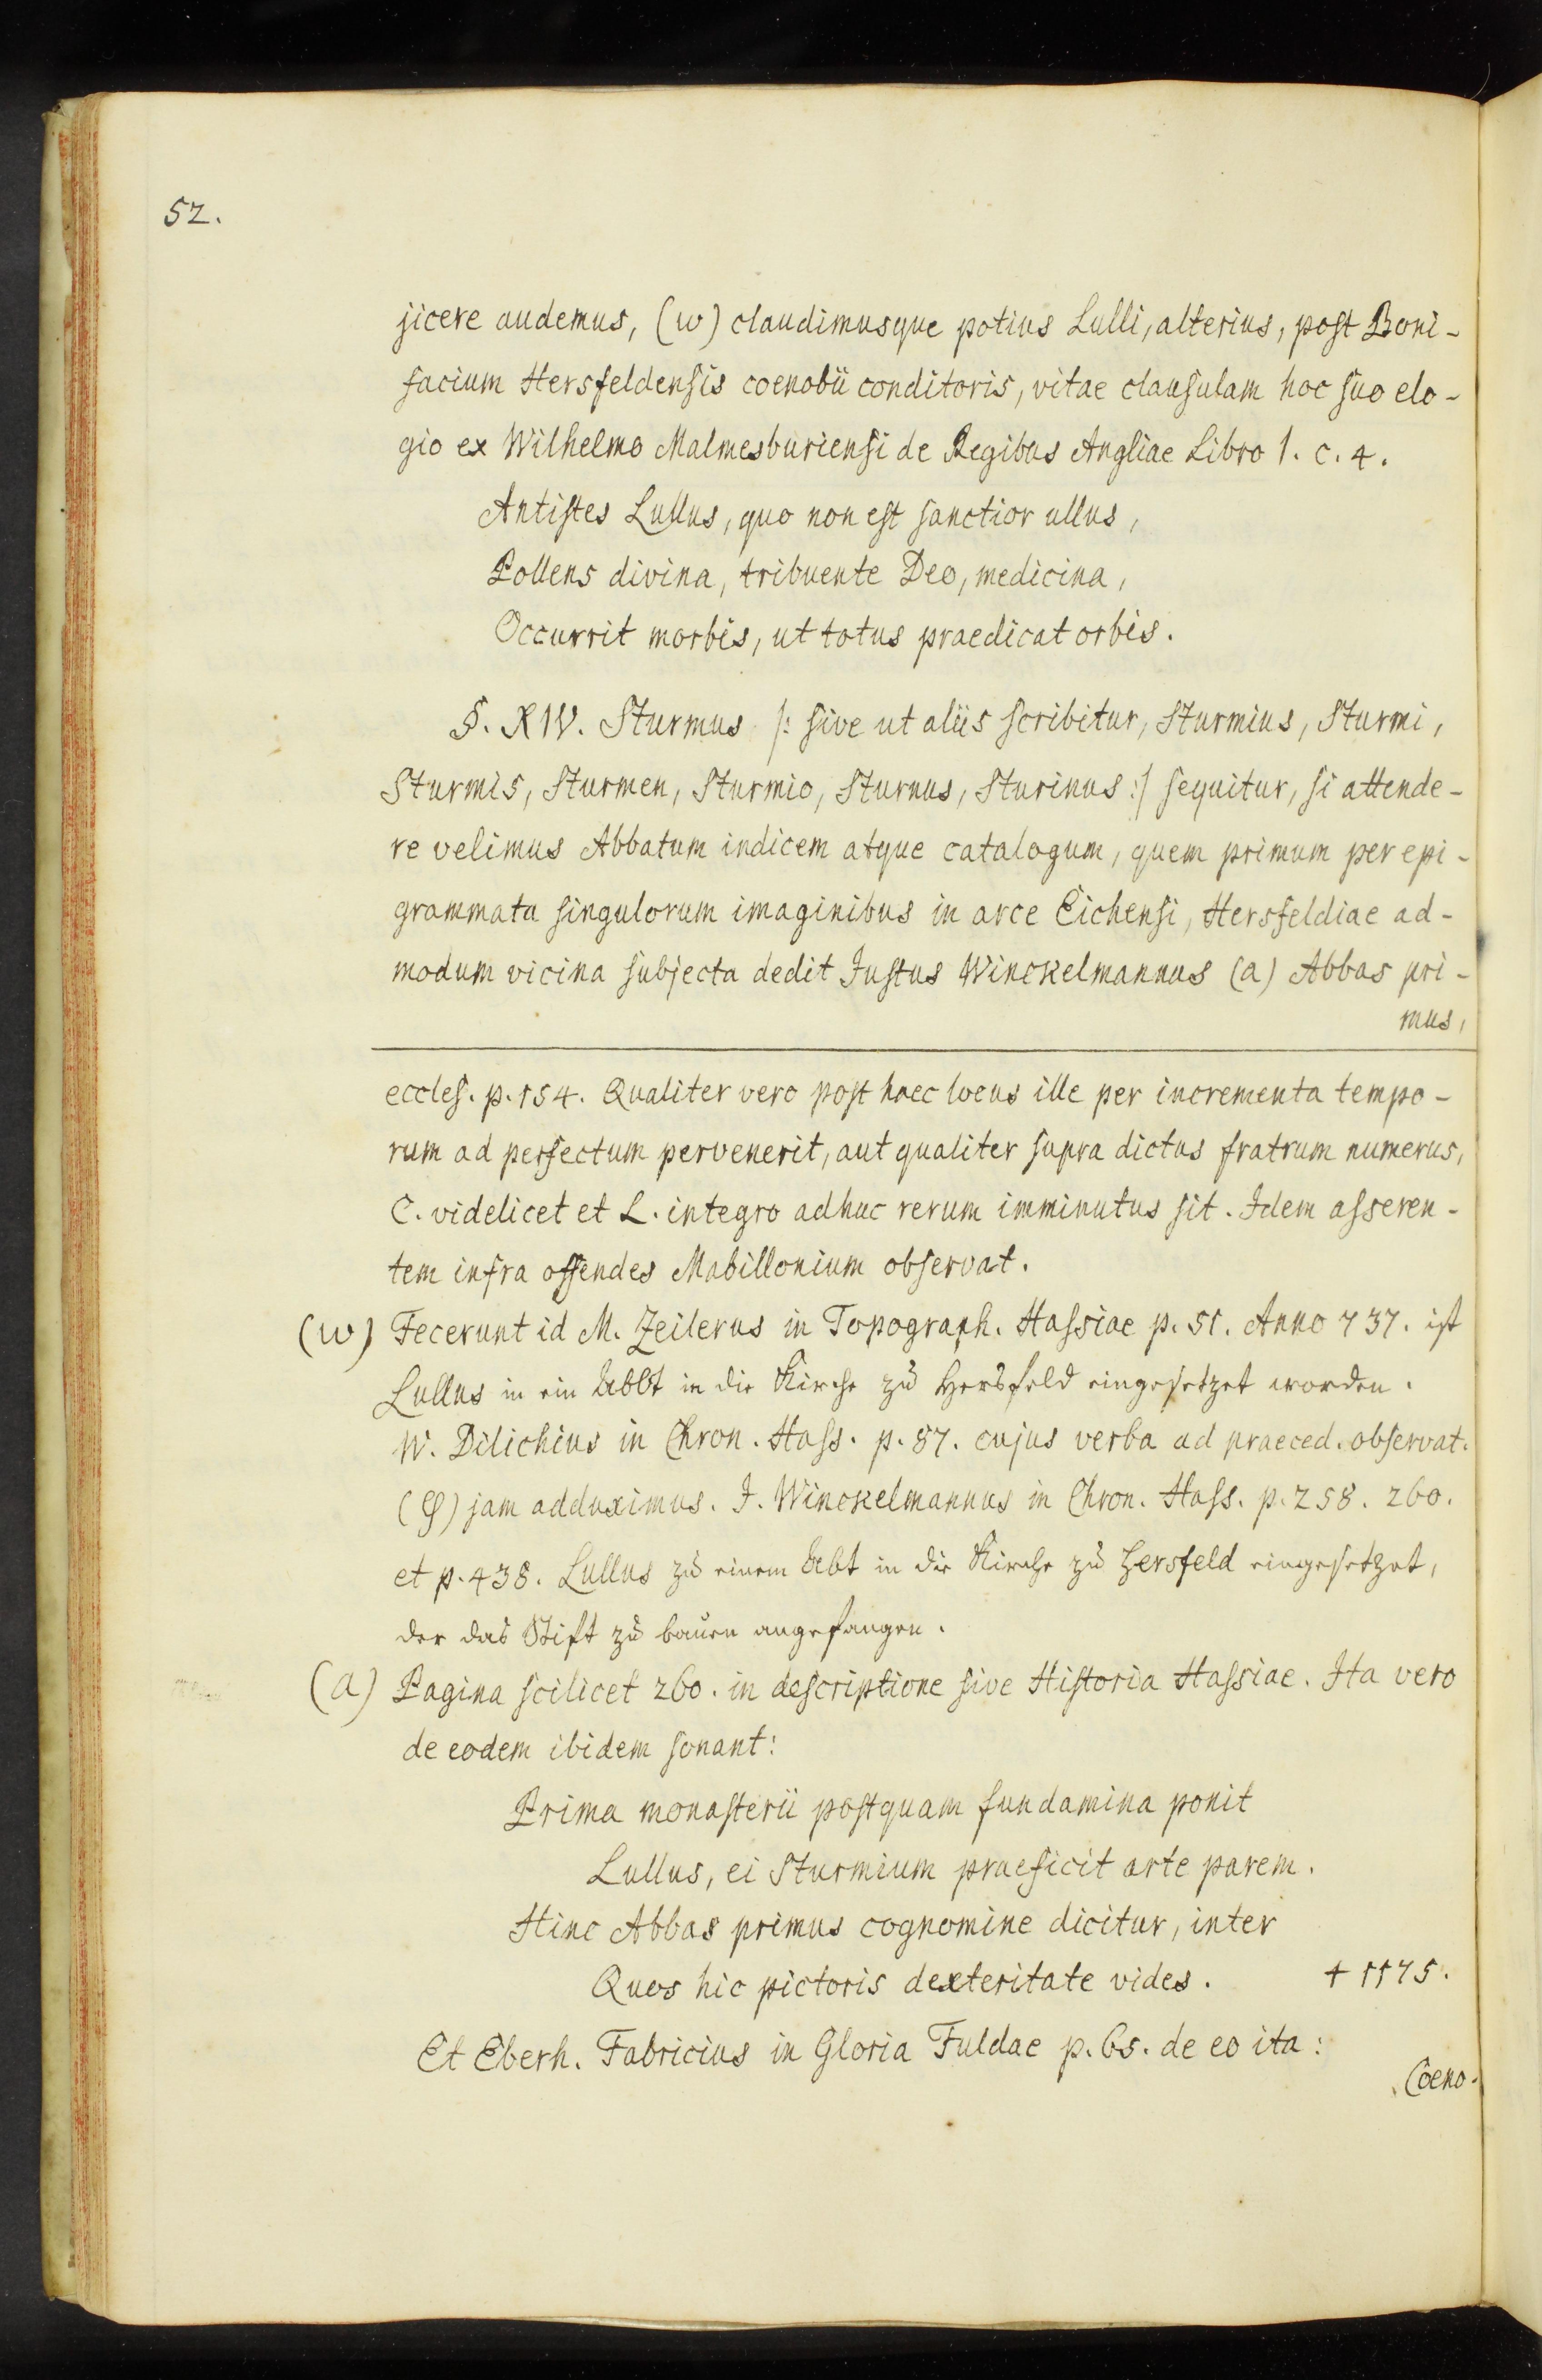 52.
jicere audemus, (w) claudimusque potius Lulli, alterius, post Boni-
facium Hersfeldensis coenobii conditoris, vitae clausulam hoc suo elo-
gio ex Wilhelmo Malmesburiensi de Regibus Angliae Libro 1. c. 4.
Antistes Lullus, quo non est sanctior ullus,
Pollens divina, tribuente Deo, medicina,
Occurrit morbis, ut totus praedicat orbis.
§. XIV. Sturmus /: sive ut aliis scribitur, Sturmius, Sturmi,
Sturmis, Sturmen, Sturmio, Sturnus, Sturinus :/ sequitur, si attende-
re velimus Abbatum indicem atque catalogum, quem primum per epi-
grammata singulorum imaginibus in arce Eichensi, Hersfeldiae ad-
modum vicina subjecta dedit Justus Winckelmannus (a) Abbas pri-
mus,
eccles. p. 154. Qualiter vero post haec locus ille per incrementa tempo-
rum ad perfectum pervenerit, aut qualiter supra dictus fratrum numerus,
C. videlicet et L. integro adhuc rerum imminutus sit. Idem asseren-
tem infra offendes Mabillonium observat.
(w) Fecerunt id M. Zeilerus in Topograph. Hassiae p. 51. Anno 737. ist
Lullus in ein Abbt in die Kirche zu Hersfeld eingesetzet worden.
W. Dilichius in Chron. Hass. p. 87. cujus verba ad praeced. observat.
jam adduximus. J. Winckelmannus in Chron. Hass. p. 258. 260.
et p. 438. Lullus zu einem Abt in die Kirche zu Hersfeld eingesetzet,
der das Stift zu bauen angefangen.
(a) Pagina scilicet 260. in descriptione sive Historia Hassiae. Ita vero
de eodem ibidem sonant:
Prima monasterii postquam fundamina ponit
Lullus, ei Sturmium praeficit arte parem.
Hinc Abbas primus cognomine dicitur, inter
Quos hic pictoris dexteritate vides. † 1175.
Et Eberh. Fabricius in Gloria Fuldae p. 65. de eo ita:
Coeno-